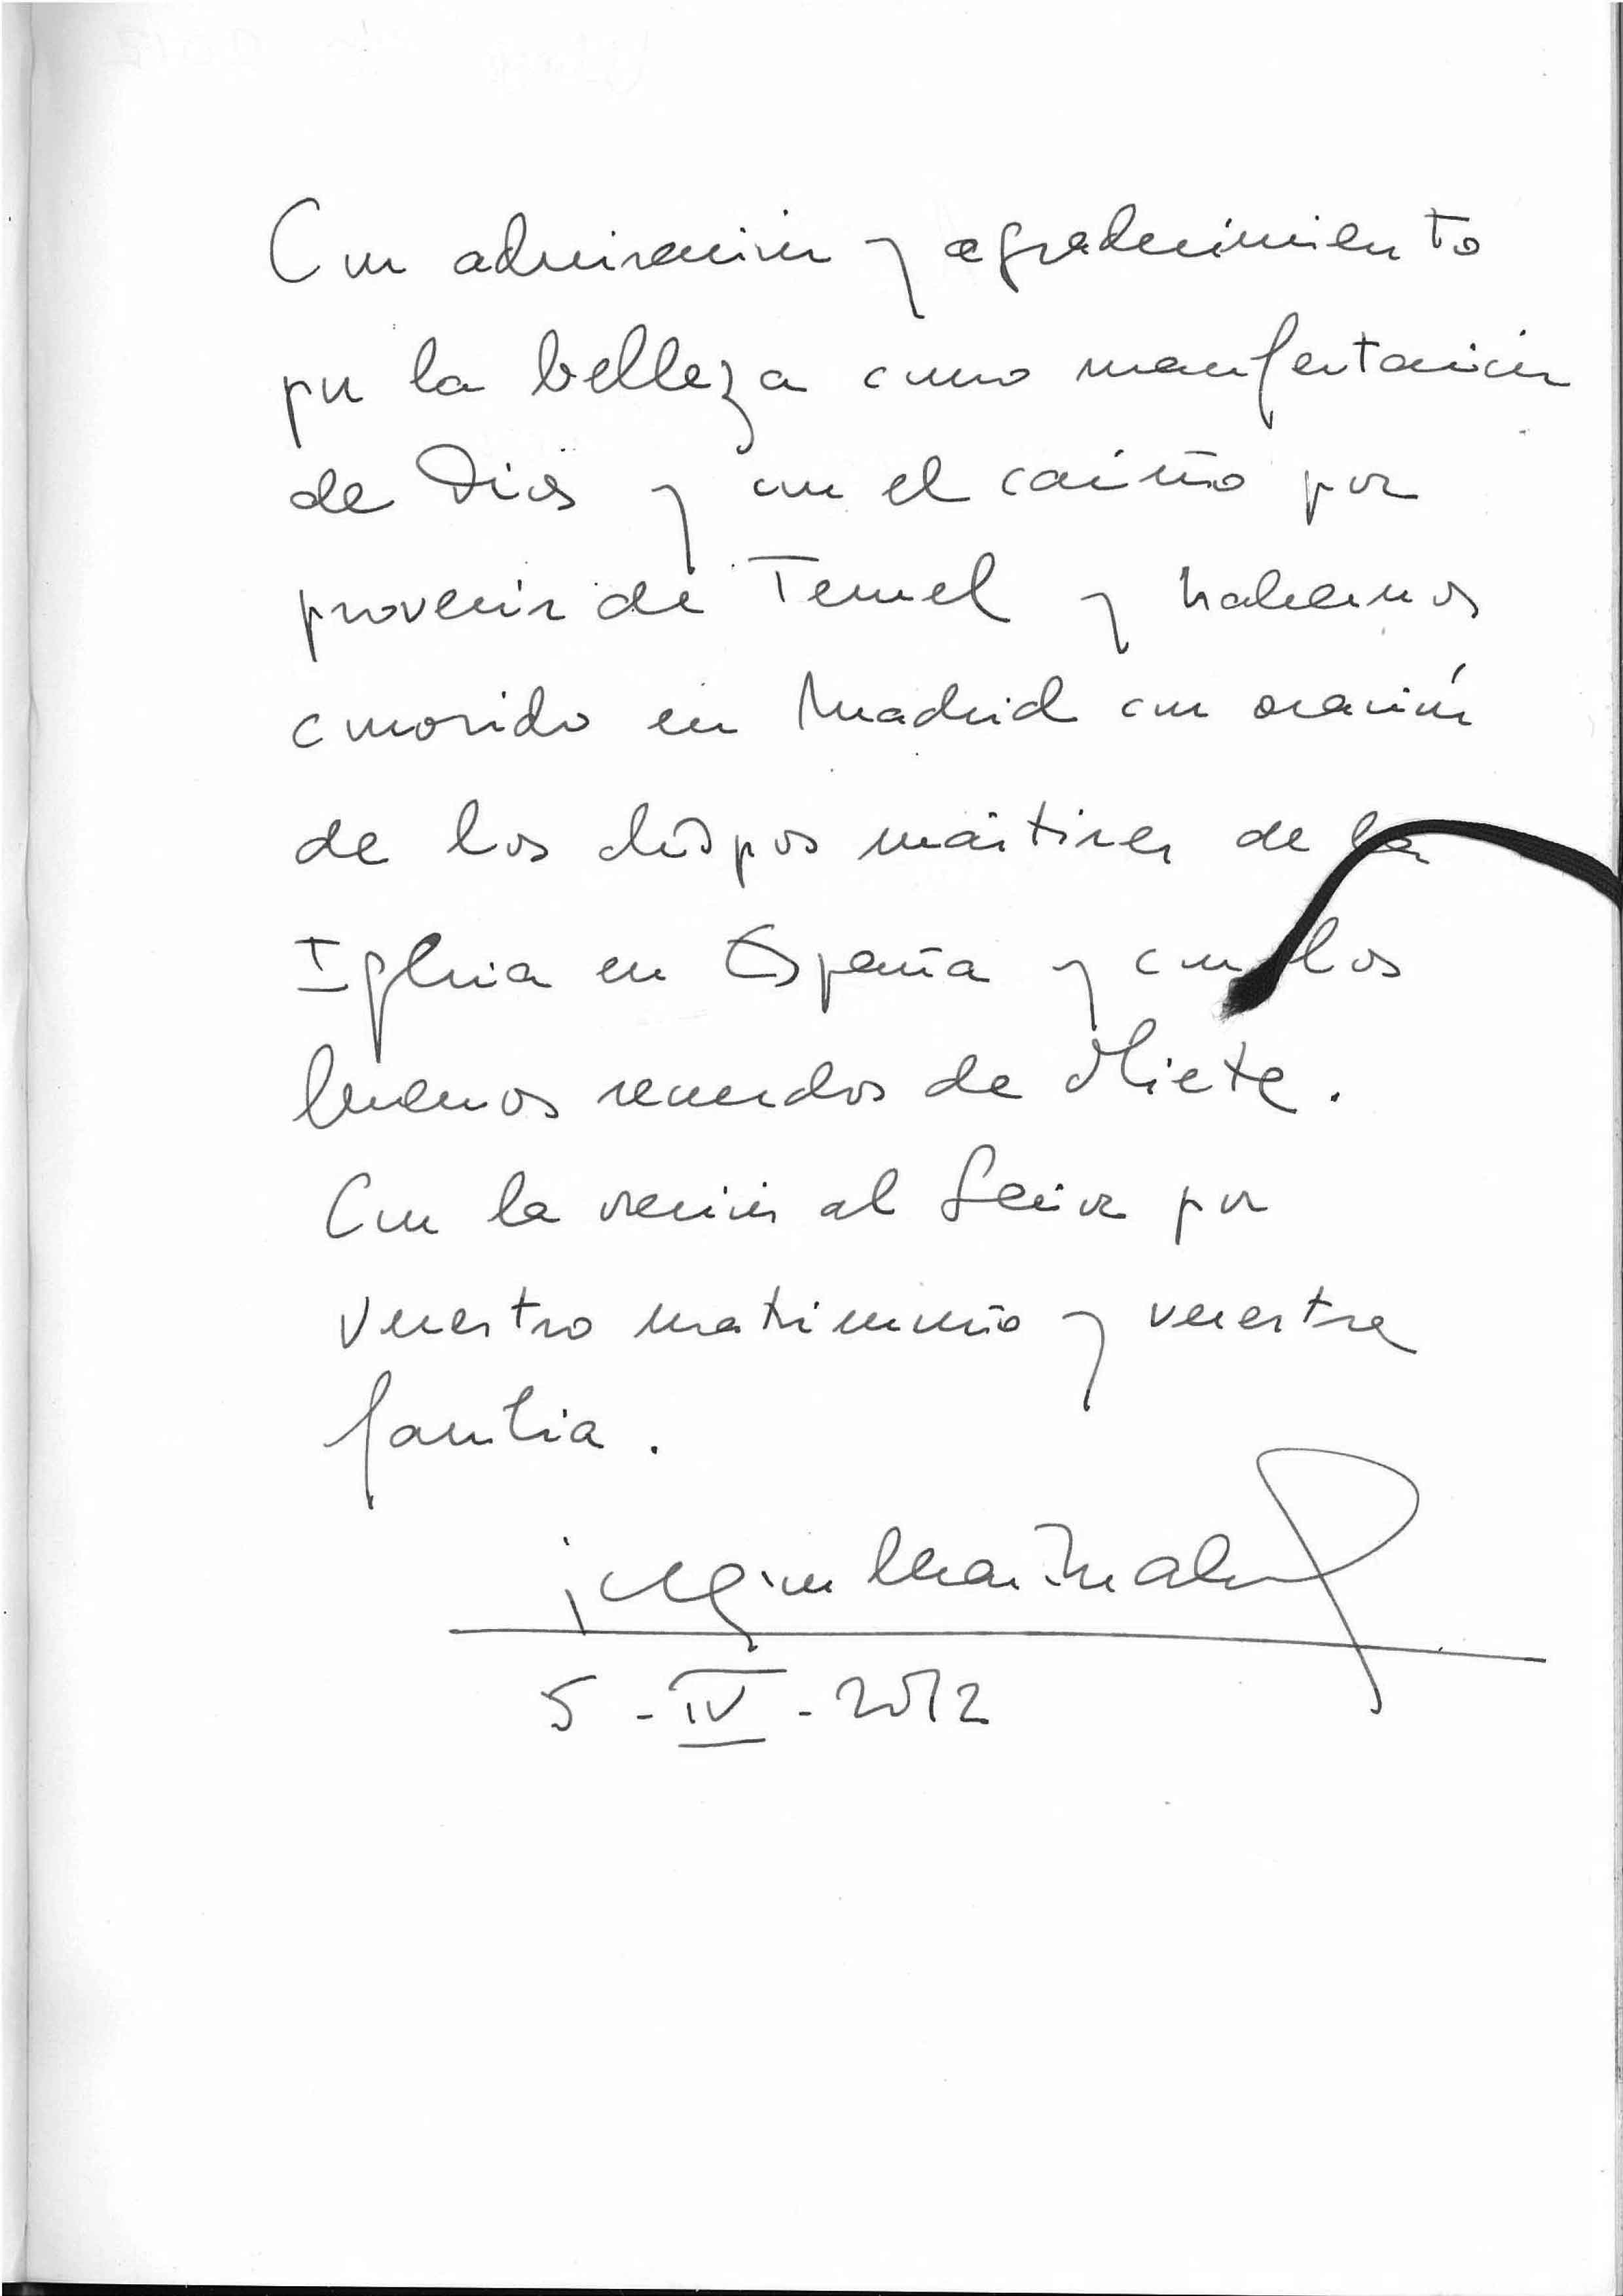 Con admiración y agradecimiento
por la belleza como manifestación
de Dios y con el cariño por
provenir de Teruel y habernos
conocido en Madrid con ocasión
de los obispos mártires de la
Iglesia en España y con los
buenos recuerdos de
Con la oración al Señor por
vuestro matrimonio y vuestra
familia.
5-IV-2012